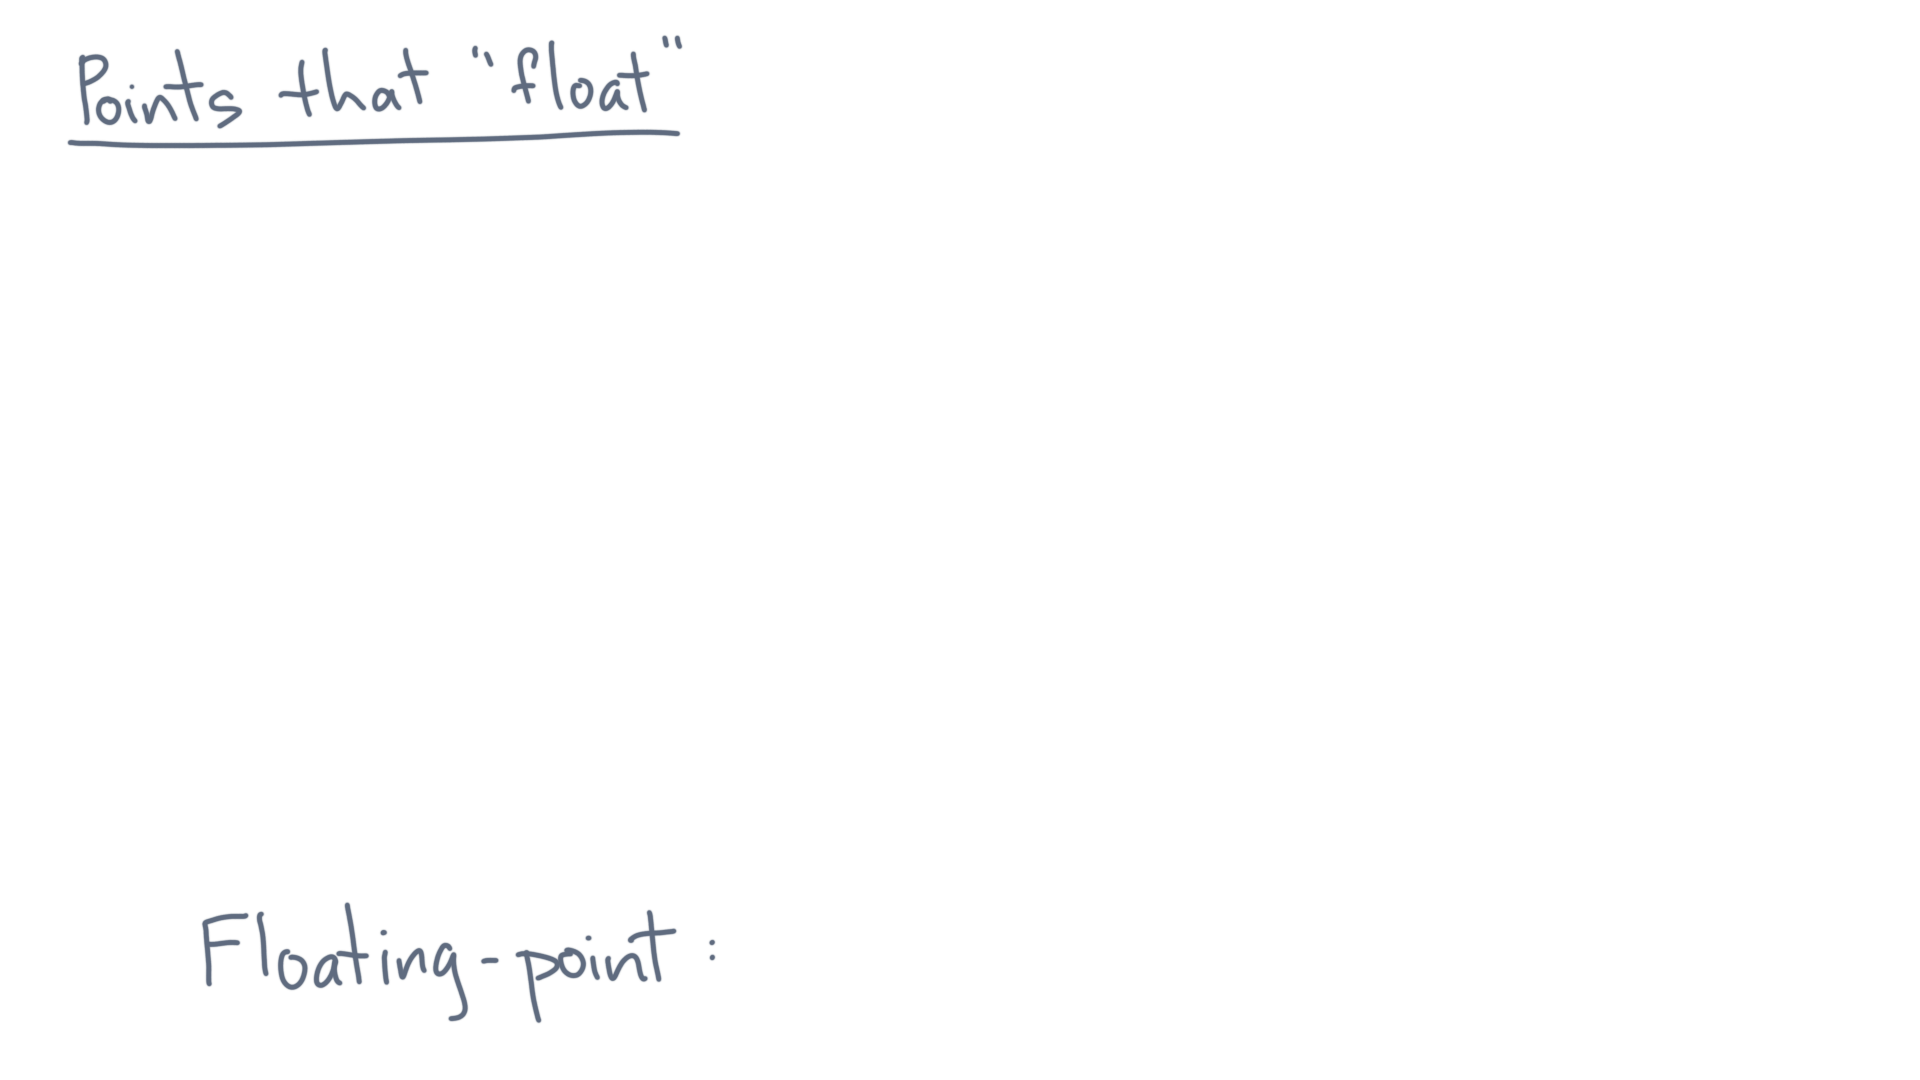 Points that "float"
Floating-point :